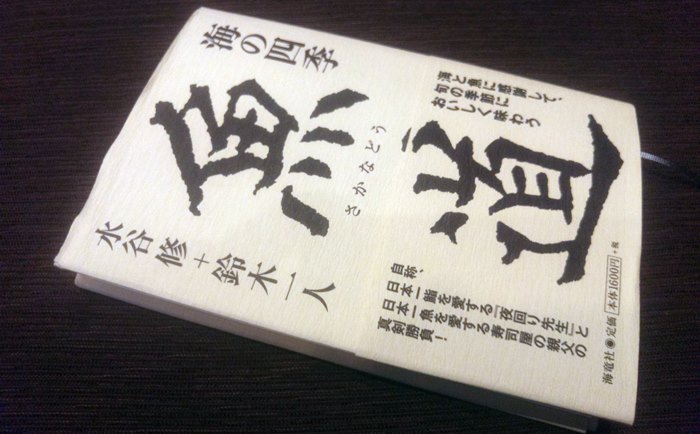 海の四季
魚道
さかなどう
水谷修+鈴木一人
海と魚に感謝して、
旬の季節に
おいしく味わう
自称、
日本一鮨を愛する「夜回り先生」と
日本一魚を愛する寿司屋の親父の
真剣勝負!
海竜社●定価 本体1600円+税